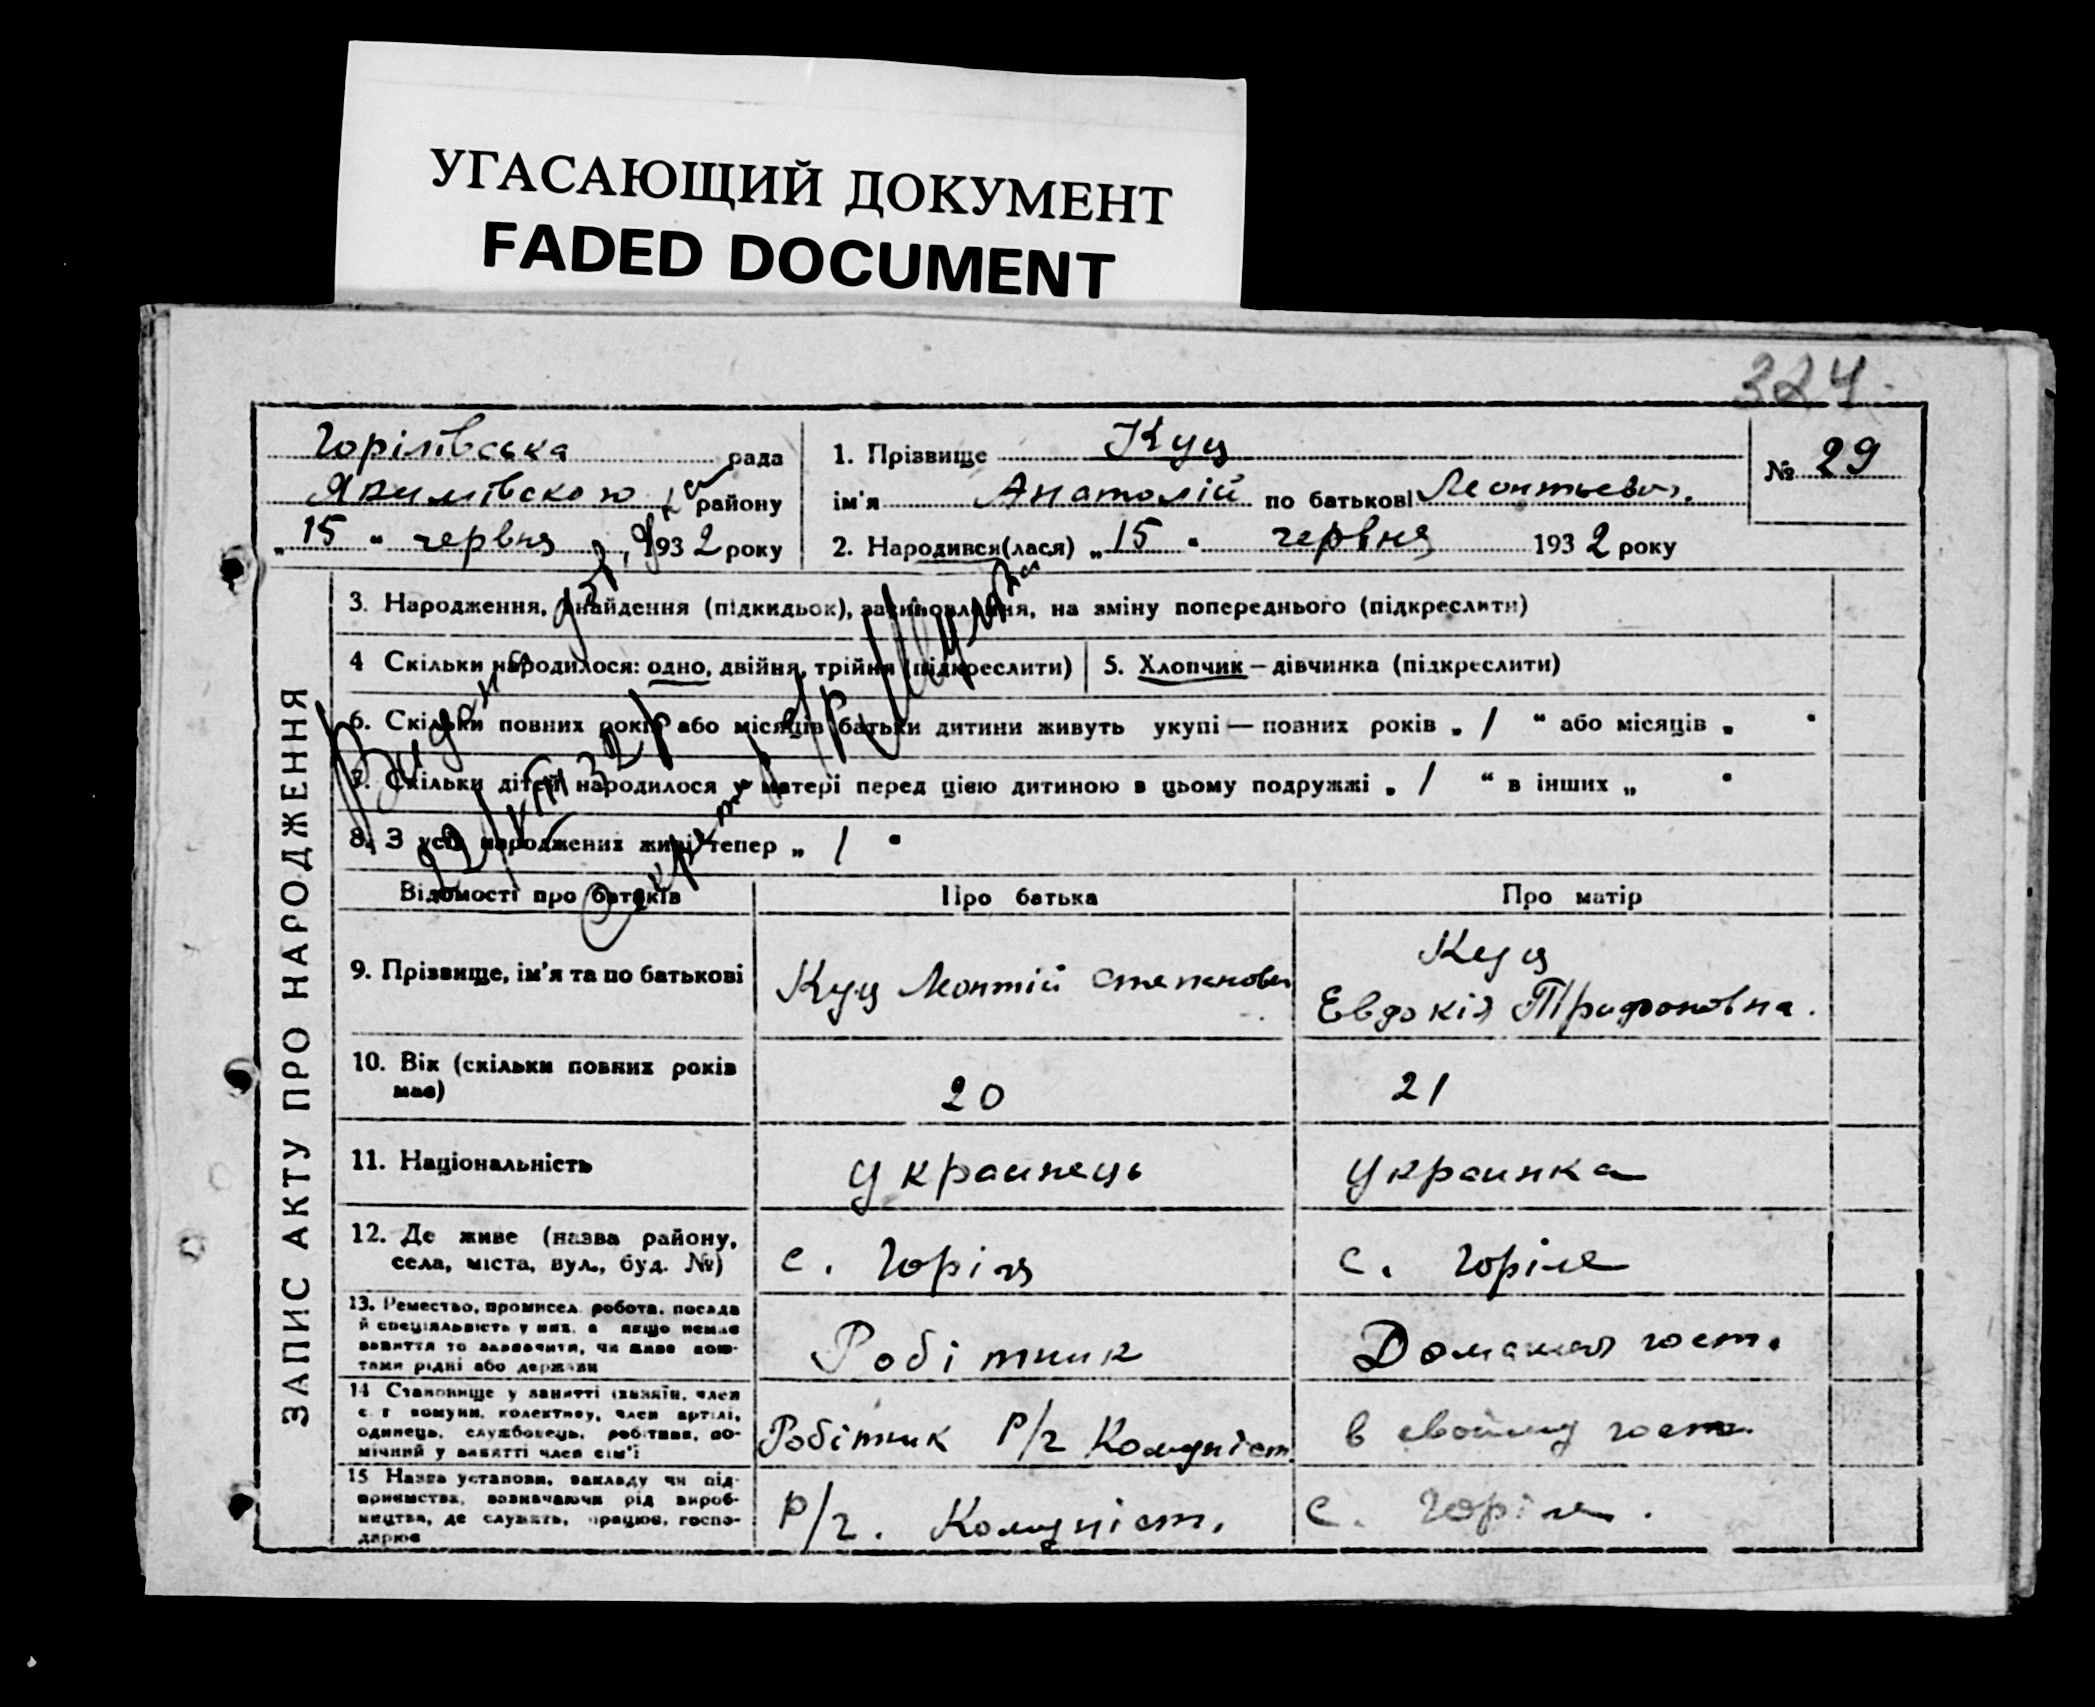 УГАСАЮЩИЙ ДОКУМЕНТ
FADED DOCUMENT
324
Горілівська рада
району
„ 15 “ червня 1932 року
1. Прізвище Куц
ім'я Анатолій по батькові Леонтьевич.
2. Народився(лася) „ 15 “ червня 1932 року
№ 29
ЗАПИС АКТУ ПРО НАРОДЖЕННЯ
3. Народження, знайдення (підкидьок), визиновлення, на зміну попереднього (підкреслити)
4 Скільки народилося: одно, двійня, трійня (підкреслити)
5. Хлопчик — дівчинка (підкреслити)
6. Скільки повних років або місяців батьки дитини живуть укупі — повних років „ 1 “ або місяців „ “
7. Скільки дітей народилося у матері перед цією дитиною в цьому подружжі „ 1 “ в інших „ “
8. З усіх народжених живі тепер „ 1 “
Видана
Відомості про батьків
Про батька
Про матір
9. Прізвище, ім'я та по батькові
Куц Леонтій Степанович
Куц
Евдокія Трифоновна.
10. Вік (скільки повних років
має)
20
21
11. Національність
Украинець
Украинка
12. Де живе (назва району,
села, міста, вул., буд. №)
с. Горіля
с. Горіле
13. Ремество, промисел, робота, посада
й спеціяльність у них, а якщо немає
заняття то зазначити, чи живе кош-
тами рідні або держави
Робітник
Домашня гост.
14 Становище у занятті (хазяїн, член
с. г комуни, колективу, член артілі,
одинець, службовець, робітник, по-
мічний у занятті член сім'ї
Робітник Р/г Комуніст
в своїму гост.
15 Назва установи, закладу чи під-
приємства, зазначаючи рід вироб-
ництва, де служить, працює, госпо-
дарює
Р/г. Комуніст.
с. Горіле.